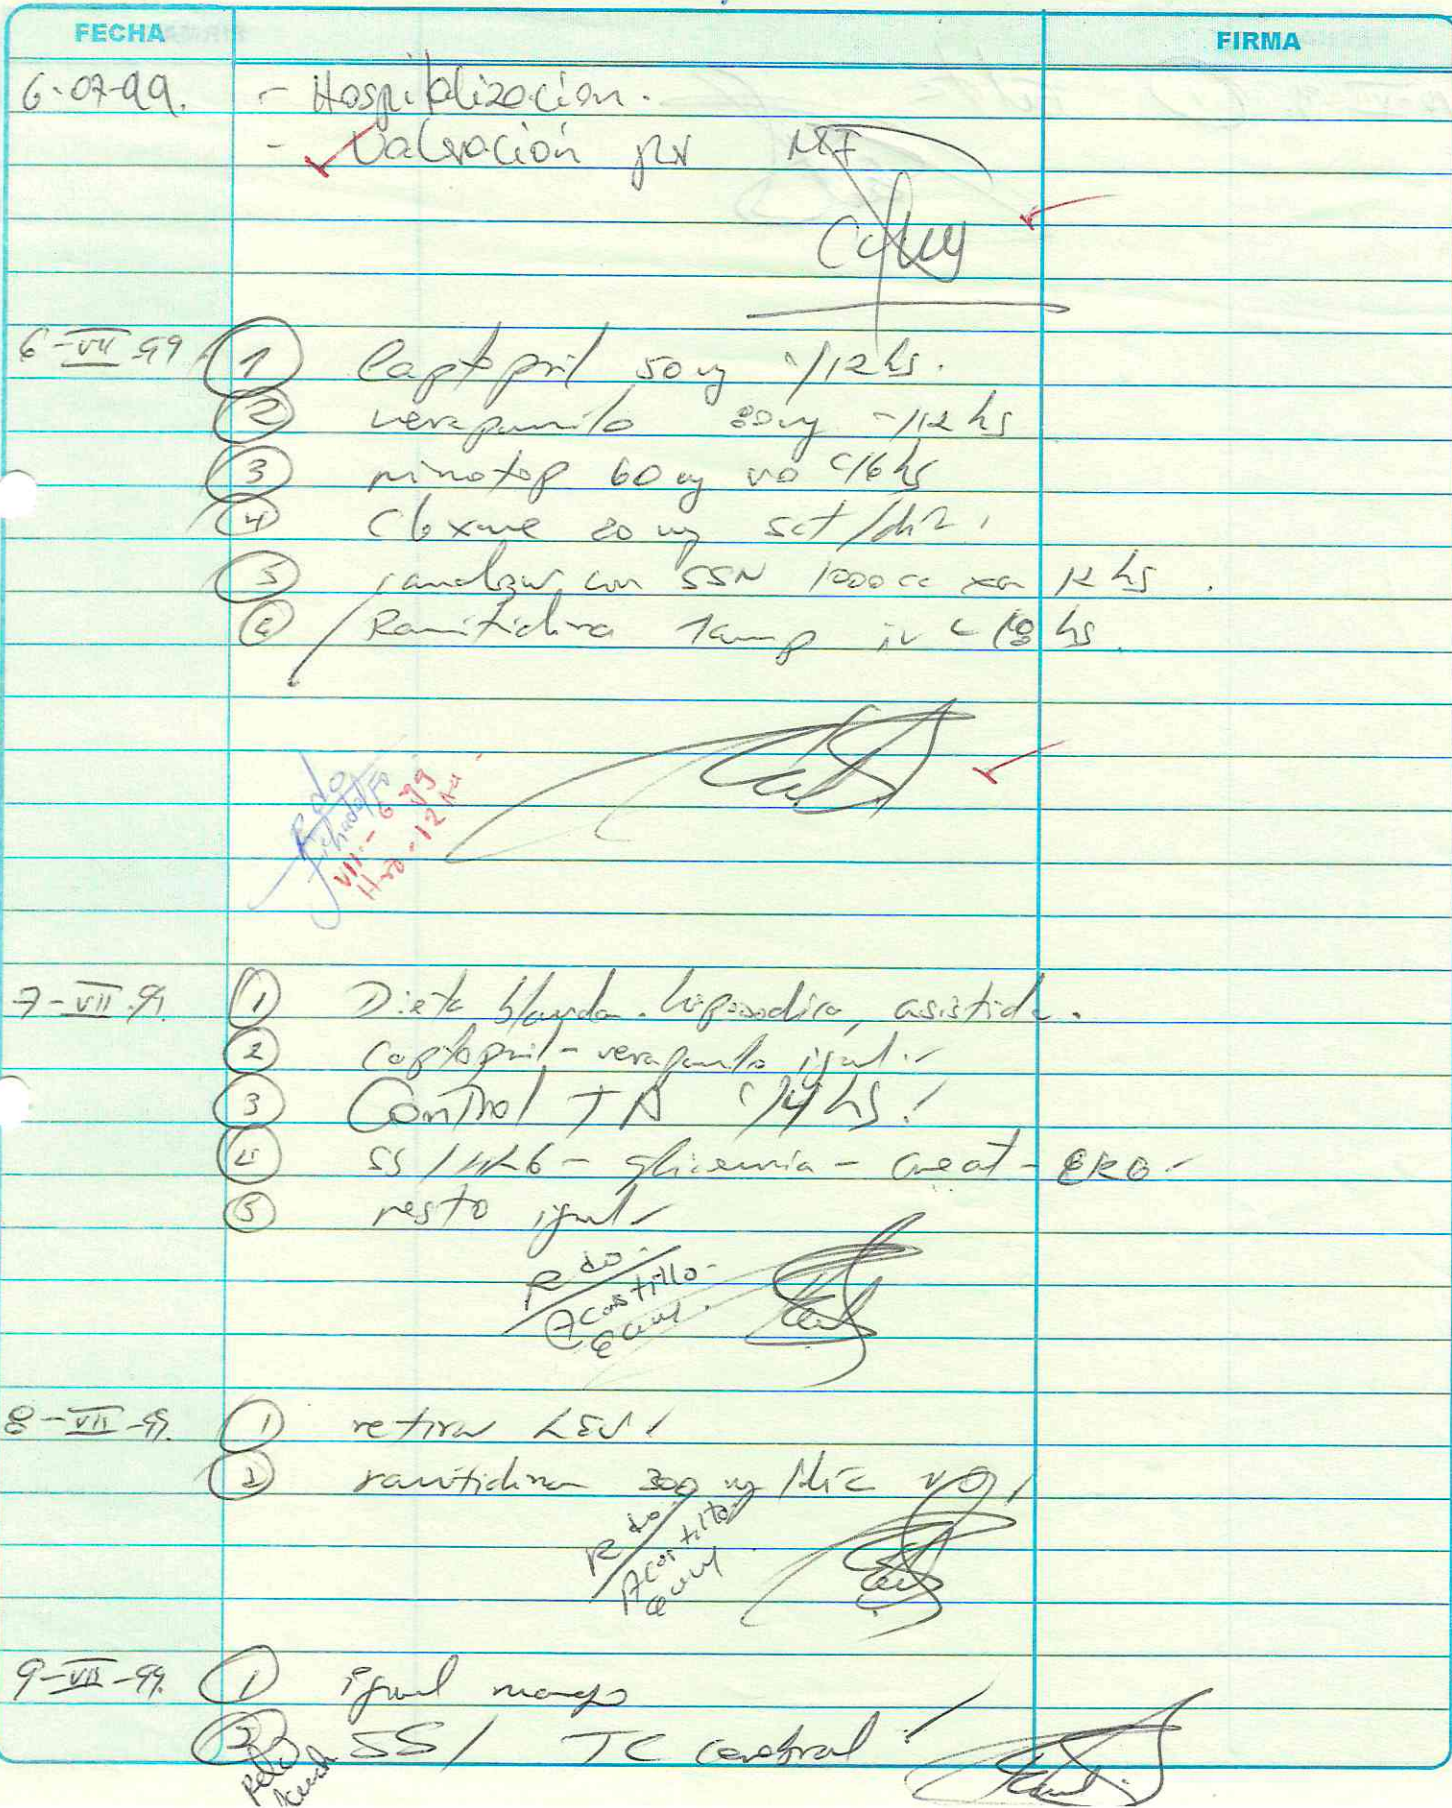 FECHA FIRMA
6-07-99. - Hospitalización.
- Valoración por MI
6-VII-99 1 Captopril 50 mg c/12 hs.
2 verapamilo 80 mg c/12 hs
3 nimotop 60 mg vo c/6 hs
4 Clexane 20 mg sct/día.
5 canalizar con SSN 1000 cc xa 12 hs.
6 Ranitidina 1amp iv c hs.
Rdo
VII-6-99
Hra-12
7-VII-99. 1 Dieta blanda. hiposodica, asistida.
2 captopril - verapamilo igual.
3 Control TA c/4 hs!
4 SS/ - glicemia - creat - EKG-
5 resto igual
Rdo.
Acastillo
8-VII-99. 1 retirar LEV!
2 ranitidina 300 mg /día vo!
Rdo
Acastillo
9-VII-99. 1 igual manejo
2 SS/ TC cerebral!